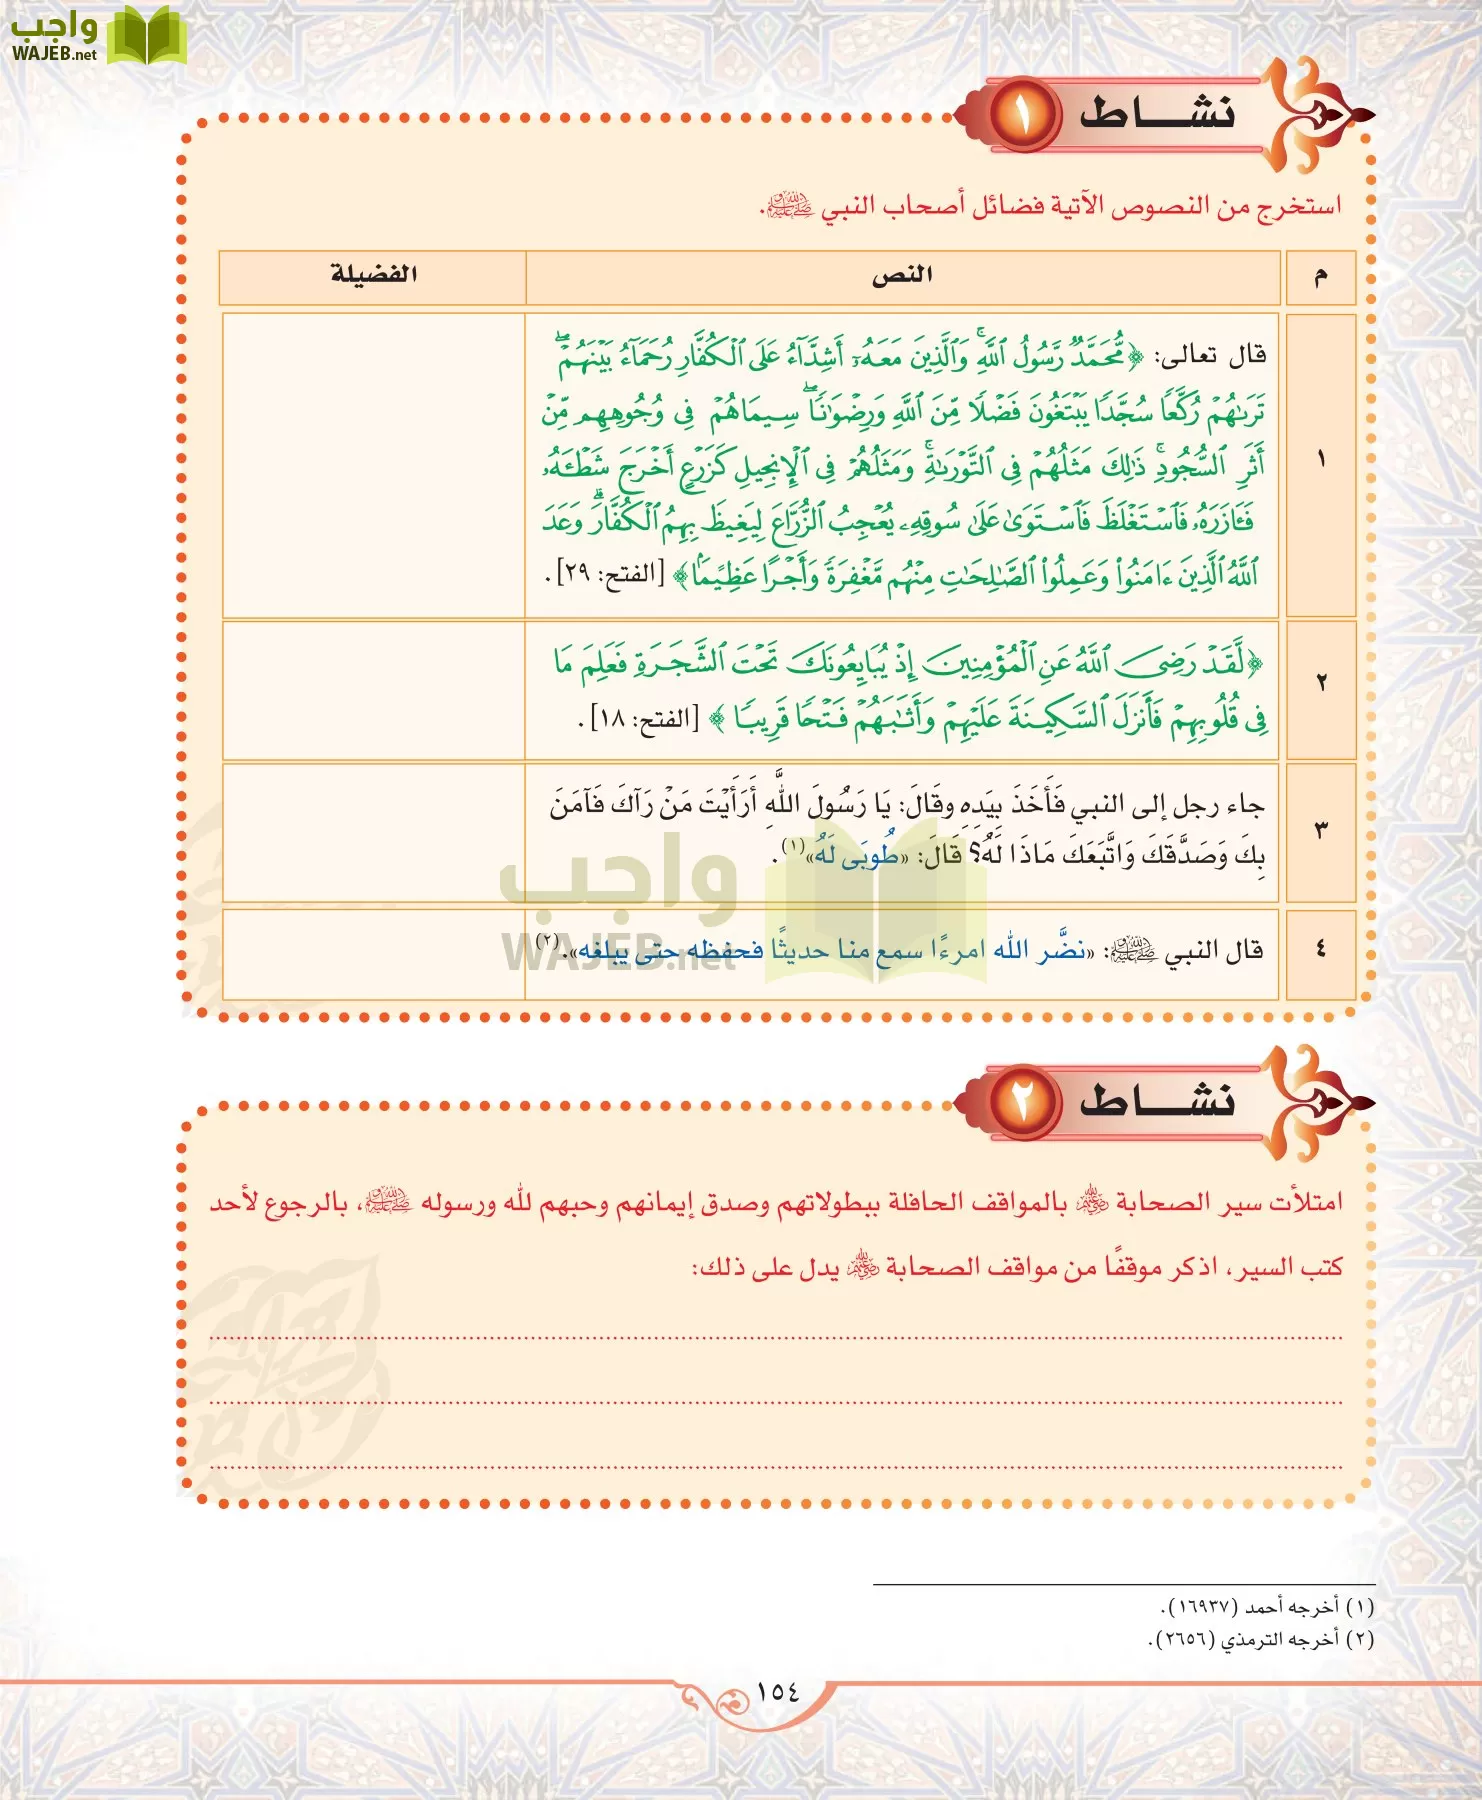 واجب
WAJEB.net
نشاط ١
استخرج من النصوص الآتية فضائل أصحاب النبي ﷺ.
م النص الفضيلة
١
قال تعالى: ﴿مُّحَمَّدٌ رَّسُولُ ٱللَّهِۚ وَٱلَّذِينَ مَعَهُۥٓ أَشِدَّآءُ عَلَى ٱلۡكُفَّارِ رُحَمَآءُ بَيۡنَهُمۡۖ
تَرَىٰهُمۡ رُكَّعٗا سُجَّدٗا يَبۡتَغُونَ فَضۡلٗا مِّنَ ٱللَّهِ وَرِضۡوَٰنٗاۖ سِيمَاهُمۡ فِي وُجُوهِهِم مِّنۡ
أَثَرِ ٱلسُّجُودِۚ ذَٰلِكَ مَثَلُهُمۡ فِي ٱلتَّوۡرَىٰةِۚ وَمَثَلُهُمۡ فِي ٱلۡإِنجِيلِ كَزَرۡعٍ أَخۡرَجَ شَطۡـَٔهُۥ
فَـَٔازَرَهُۥ فَٱسۡتَغۡلَظَ فَٱسۡتَوَىٰ عَلَىٰ سُوقِهِۦ يُعۡجِبُ ٱلزُّرَّاعَ لِيَغِيظَ بِهِمُ ٱلۡكُفَّارَۗ وَعَدَ
ٱللَّهُ ٱلَّذِينَ ءَامَنُواْ وَعَمِلُواْ ٱلصَّٰلِحَٰتِ مِنۡهُم مَّغۡفِرَةٗ وَأَجۡرًا عَظِيمَۢا﴾ [الفتح: ٢٩].
٢
﴿لَّقَدۡ رَضِيَ ٱللَّهُ عَنِ ٱلۡمُؤۡمِنِينَ إِذۡ يُبَايِعُونَكَ تَحۡتَ ٱلشَّجَرَةِ فَعَلِمَ مَا
فِي قُلُوبِهِمۡ فَأَنزَلَ ٱلسَّكِينَةَ عَلَيۡهِمۡ وَأَثَٰبَهُمۡ فَتۡحٗا قَرِيبٗا﴾ [الفتح: ١٨].
٣
جاء رجل إلى النبي فَأَخَذَ بِيَدِهِ وقَالَ: يَا رَسُولَ اللَّهِ أَرَأَيْتَ مَنْ رَآكَ فَآمَنَ
بِكَ وَصَدَّقَكَ وَاتَّبَعَكَ مَاذَا لَهُ؟ قَالَ: «طُوبَى لَهُ»(١).
٤
قال النبي ﷺ: «نضَّر الله امرءًا سمع منا حديثًا فحفظه حتى يبلغه».(٢)
واجب
WAJEB.net
نشاط ٢
امتلأت سير الصحابة رضي الله عنهم بالمواقف الحافلة ببطولاتهم وصدق إيمانهم وحبهم لله ورسوله ﷺ، بالرجوع لأحد
كتب السير، اذكر موقفًا من مواقف الصحابة رضي الله عنهم يدل على ذلك:
(١) أخرجه أحمد (١٦٩٣٧).
(٢) أخرجه الترمذي (٢٦٥٦).
١٥٤